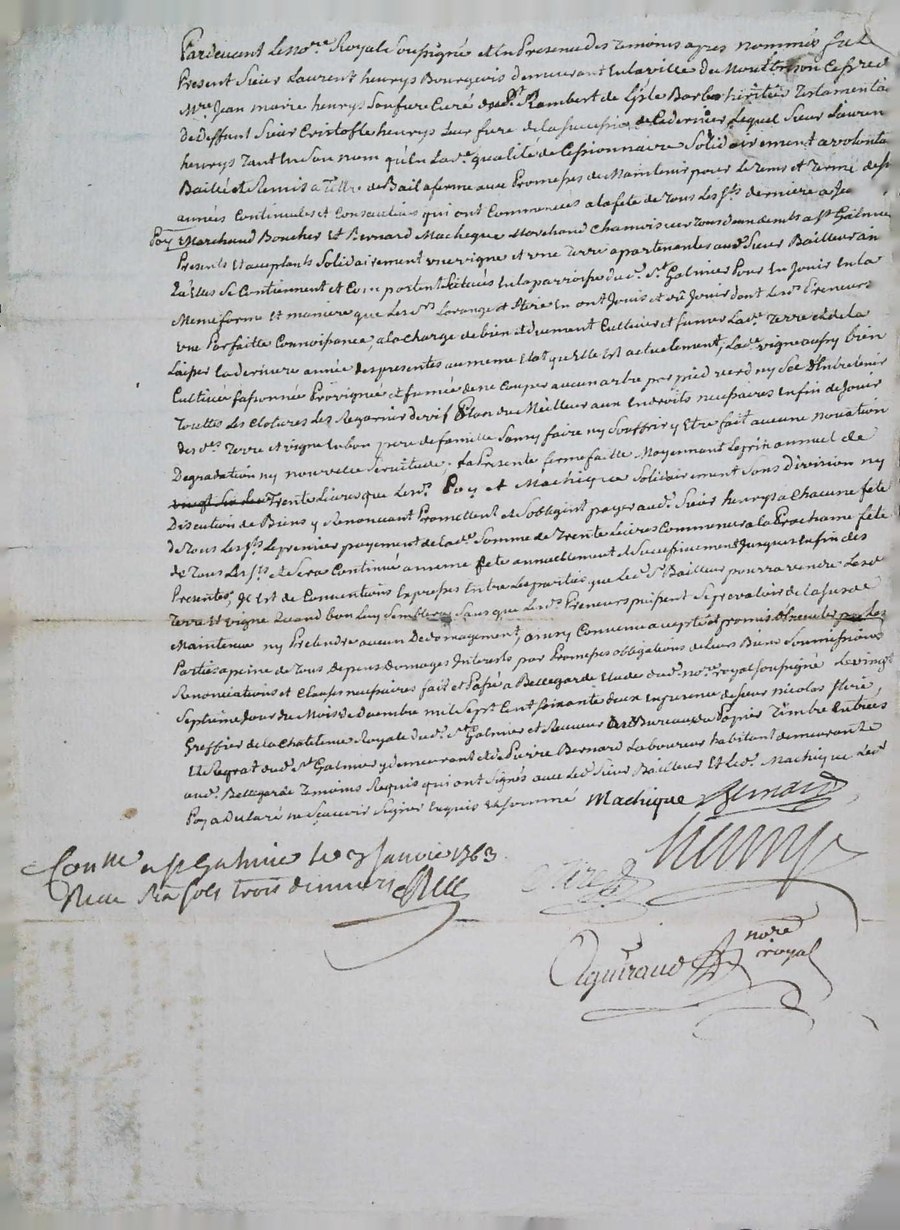 Pardevant Le no.re Royal Soussigné et En Presence des temoins apres nommés fut
Present Sieur Laurent henrys Bourgeois demeurant En la ville de Montbrison Cess.re de
M.re Jean marie henrys Son frere Curé de S.t Rambert de L'isle Barbe heritier Testamenta
de deffunt Sieur Cristofle henrys Leur frere de la succession de Ce dernier Lequel Sieur Lauren
henrys Tant En Son nom qu'En la d.e qualité de Cessionnaire Solidairement a volonta
Baillé et Remis a Titre de Bail a ferme aux Promesses de Maintenir pour le Tems et Terme de
années Continuelles et Consecutives qui ont Commencés a la fete de Tous Les S.ts derniere a Jea
Poy Marchand Boucher Et Bernard Machique Marchand Chamoiseur Tous deux demts a S.t Galmier
Presents Et acceptants Solidairement une vigne et une Terre apartenantes aud. Sieur Bailleur ain
qu'Elles Se Contiennent et Comportent Scituées En la parroisse dud. S.t Galmier Pour En Jouir En la
Meme forme Et maniere que Les S.rs Lorange et Stiré En ont Jouis et dû Jouir dont Les d. Preneurs
une Parfaitte Connoissance, a la Charge de bien et duement Cultiver et fumer La d. Terre et de la
Laisser la derniere année des presentes au meme Etat qu'Elle Est actuellement, La d. vigne aussy bien
Cultivée façonnée Provignée et fumée de ne Couper aucun arbre par pied verd ny Sec d'Entretenir
Touttes Les Clotures Les Regarnir de vif Plan du Meilleur aux Endroits necessaires Enfin de Jouir
des d.es Terre et vigne En bon pere de famille Sans y faire ny Souffrir y Etre fait aucune novation
Degradation ny nouvelle Servitude. La Presente ferme faitte Moyennant Le prix annuel de
Trente Livres que Les d. Poy et Machique Solidairement Sans division ny
Discution de Biens y Renonçant Promettent et S'obligent payer aud. Sieur henrys a Chacune fete
de Tous Les S.ts Le premier payement de la d. Somme de Trente Livres Commencera la Prochaine fete
de Tous Les S.ts et Sera Continué a meme fete annuellement et Successivement Jusques En fin des
Presentes, Il Est de Conventions Expresses Entre Les parties que Le d. S.r Bailleur pourra vendre Les d.
Terre et vigne Quand bon Luy Semblera Sans que Les d. Preneurs puissent Se prevaloir de la Susd.e
Maintenue ny Pretendre aucun Dedomagement, ainsy Convenu accepté et promis observer
Parties a peine de Tous depens domages Interests par Promesses obligations de Leurs Biens Soumissions
Renonciations et Clauses necessaires fait et Passé a Bellegarde Etude du d. no.re royal soussigné Le vingt
Septieme Jour du Mois de decembre mil Sept Cent Soixante deux En presence de Sieur Nicolas Stiré,
Greffier de la Chatelenie Royale dud. S.t Galmier et Receveur du Bureau du Papier Timbré Entrées
Et Regrat dud. S.t Galmier y demeurant et de Pierre Bernard Laboureur habitant demeurant
aud. Bellegarde Temoins Requis qui ont Signés avec Le d. Sieur Bailleur Et Le d. Machique Le d.
Poy a declaré ne Sçavoir Signer Enquis et Sommé Machique Bernard
henrys
Con.lle a S.t Galmier le 3 janvier 1763
Recu Six sols trois deniers
Stiré
nore
royal